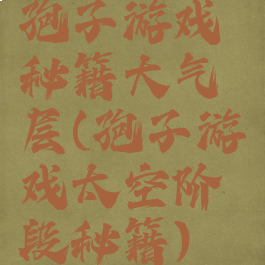 孢子游戏
秘籍大气
层(孢子游
戏太空阶
段秘籍)